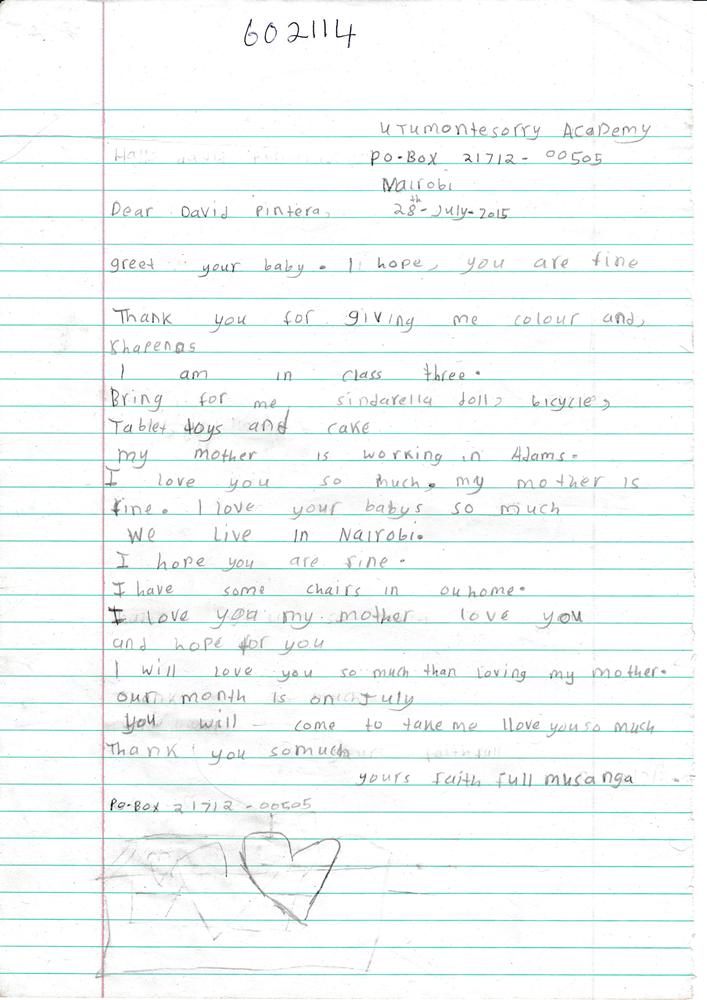 602114
UTUMONTESORRY ACADEMY
PO-BOX 21712 - 00505
Nairobi
Dear David Pintera, 28th-July-2015
greet your baby. I hope, you are fine
Thank you for giving me colour and,
Khapenas
I am in class three.
Bring for me sindarella doll, bicycle,
Tablet toys and cake
my mother is working in Adams.
I love you so much. my mother is
fine. I love your babys so much
we live in Nairobi.
I hope you are fine.
I have some chairs in ouhome.
I love you my mother love you
and hope for you
I will love you so much than loving my mother.
our month is on July
you will - come to take me I love you so much
Thank you somuch
yours faith full musanga
PO-BOX 21712 - 00505